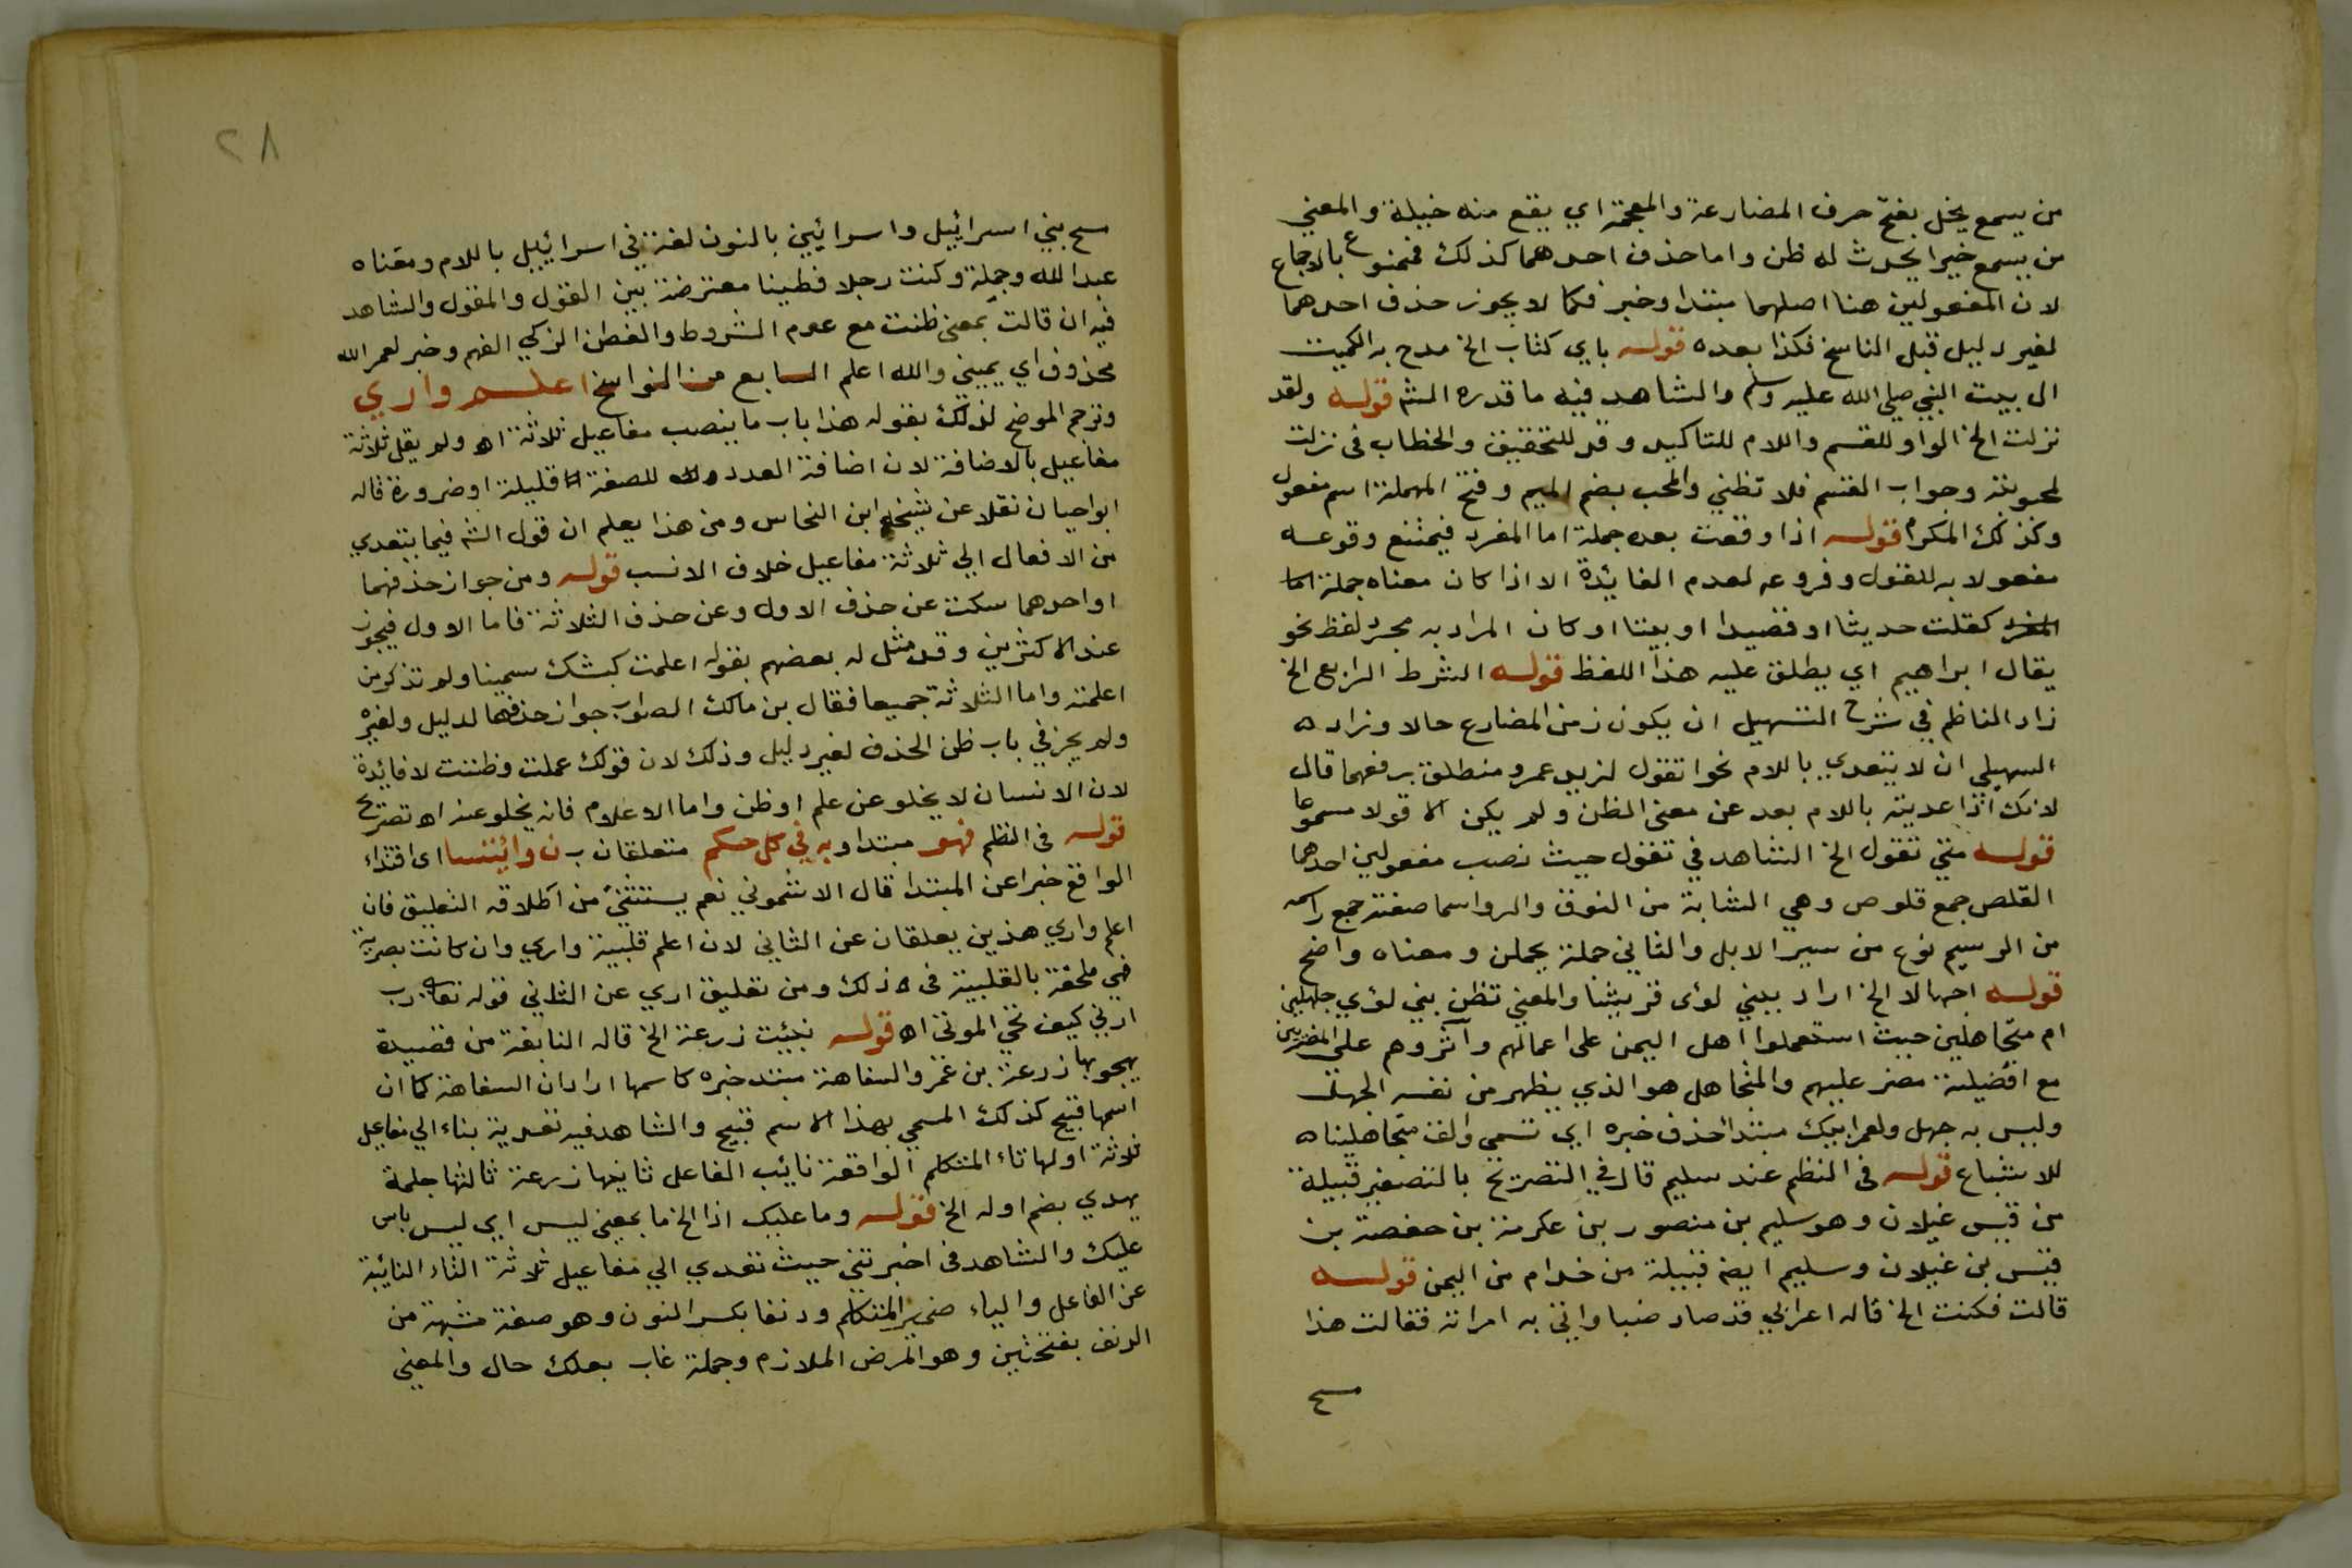 من يسمع يخل بفتح حرف المضارعة والمعجمة اي يقع منه خيلة والمعني
من يسمع خيرا يحدث له ظن واما حذف احدهما كذلك فممنوع بالاجماع
لان المفعولين هنا اصلهما مبتدا وخبر فكما لا يجوز حذف احدهما
لغير دليل قبل الناسخ فكذا بعده قوله باي كتاب الخ مدح به الكميت
ال بيت النبي صلي الله عليه وسلم والشاهد فيه ما قدره الش قوله ولقد
نزلت الخ الواو للقسم واللام للتاكيد وقد للتحقيق والخطاب في نزلت
لمحبوبته وجواب القسم فلا تظني والمحب بضم الميم وفتح المهملة اسم مفعول
وكذلك المكرم قوله اذا وقعت بعده جملة اما المفرد فيمتنع وقوعه
مفعولا به للقول وفروعه لعدم الفايدة الا اذا كان معناه جملة اما
المفرد كقلت حديثا او قصيدا او بيتا او كان المراد به مجرد لفظ نحو
يقال ابراهيم اي يطلق عليه هذا اللفظ قوله الشرط الرابع الخ
زاد الناظم في شرح التسهيل ان يكون زمن المضارع حالا وزاده
السهيلي ان لا يتعدي باللام نحو اتقول لزيد عمرو منطلق برفعهما قال
لانك اذا عديته باللام بعد عن معني الظن ولم يكن الا قولا مسموعا
قوله متي تقول الخ الشاهد في تقول حيث نصب مفعولين احدهما
القلص جمع قلوص وهي الشابة من النوق والرواسما صفته جمع راسمه
من الرسيم نوع من سير الابل والثاني جملة يحملن ومعناه واضح
قوله اجهالا الخ اراد ببني لؤي قريشا والمعني تظن بني لؤي جاهلين
ام متجاهلين حيث استعملوا اهل اليمن علي اعمالهم وآثروهم علي المضريين
مع افضلية مضر عليهم والمتجاهل هو الذي يظهر من نفسه الجهل
وليس به جهل ولعمر ابيك مبتدا حذف خبره اي قسمي والف متجاهلينا
للاشباع قوله في النظم عند سليم قال في التصريح بالتصغير قبيلة
من قيس غيلان وهو سليم بن منصور بن عكرمة بن حفصة بن
قيس بن غيلان وسليم ايضا قبيلة من خدام من اليمن قوله
قالت فكنت الخ قاله اعرابي قد صاد ضبا واتي به امراته فقالت هذا
مسخ
٢٨
مسخ بني اسراييل واسرايين بالنون لغة في اسراييل باللام ومعناه
عبد الله وجملة وكنت رجلا فطينا معترضة بين القول والمقول والشاهد
فيه ان قالت بمعني ظنت مع عدم الشروط والفطن الزكي الفهم وخبر لعمر الله
محذوف اي يميني والله اعلم السابع من النواسخ اعلم واري
وترجم الموضح لذلك بقوله هذا باب ما ينصب مفاعيل ثلاثة اه ولم يقل ثلاثة
مفاعيل بالاضافة لان اضافة العدد للصفة قليلة او ضرورة قاله
ابو حيان نقلا عن شيخه ابن النحاس ومن هذا يعلم ان قول الش فيما يتعدي
من الافعال الي ثلاثة مفاعيل خلاف الانسب قوله ومن جواز حذفهما
او احدهما سكت عن حذف الاول وعن حذف الثلاثة فاما الاول فيجوز
عند الاكثرين وقد مثل له بعضهم بقوله اعلمت كبشك سمينا ولم تذكر من
اعلمته واما الثلاثة جميعا فقال بن مالك الصواب جواز حذفها لدليل ولغيره
ولم يجز في باب ظن الحذف لغير دليل وذلك لان قولك علمت وظننت لا فايدة
لان الانسان لا يخلو عن علم او ظن واما الاعلام فانه يخلو عنه اه تصريح
قوله في النظم فهو مبتدا وبه في كل حكم متعلقان ب ن وايتسا اي اقتداء
الواقع خبرا عن المبتدا قال الاشموني نعم يستثني من اطلاقه التعليق فان
اعلم واري هذين يعلقان عن الثاني لان اعلم قلبية واري وان كانت بصرية
فهي ملحقة بالقلبية في ذلك ومن تعليق اري عن الثاني قوله تعالي رب
ارني كيف تحي الموتي اه قوله نبئت زرعة الخ قاله النابغة من قصيدة
يهجو بها زرعة بن عمرو والسفاهة مبتدا خبره كاسمها اراد ان السفاهة كما ان
اسمها قبيح كذلك المسمي بهذا الاسم قبيح والشاهد فيه تعدية بناء الي مفاعيل
ثلاثة اولها تاء المتكلم الواقعة نايب الفاعل ثانيها زرعة ثالثها جلمة
يهدي بضم اوله الخ قوله وما عليك اذا الخ ما بمعني ليس اي ليس باس
عليك والشاهد في اخبرتني حيث تعدي الي مفاعيل ثلاثة التاء النايبة
عن الفاعل والياء ضمير المتكلم ودنفا بكسر النون وهو صفة مشبهة من
الدنف بفتحتين وهو المرض الملازم وجملة غاب بعلك حال والمعني